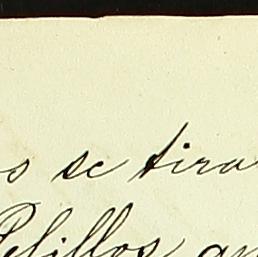 se tira
Pelillos